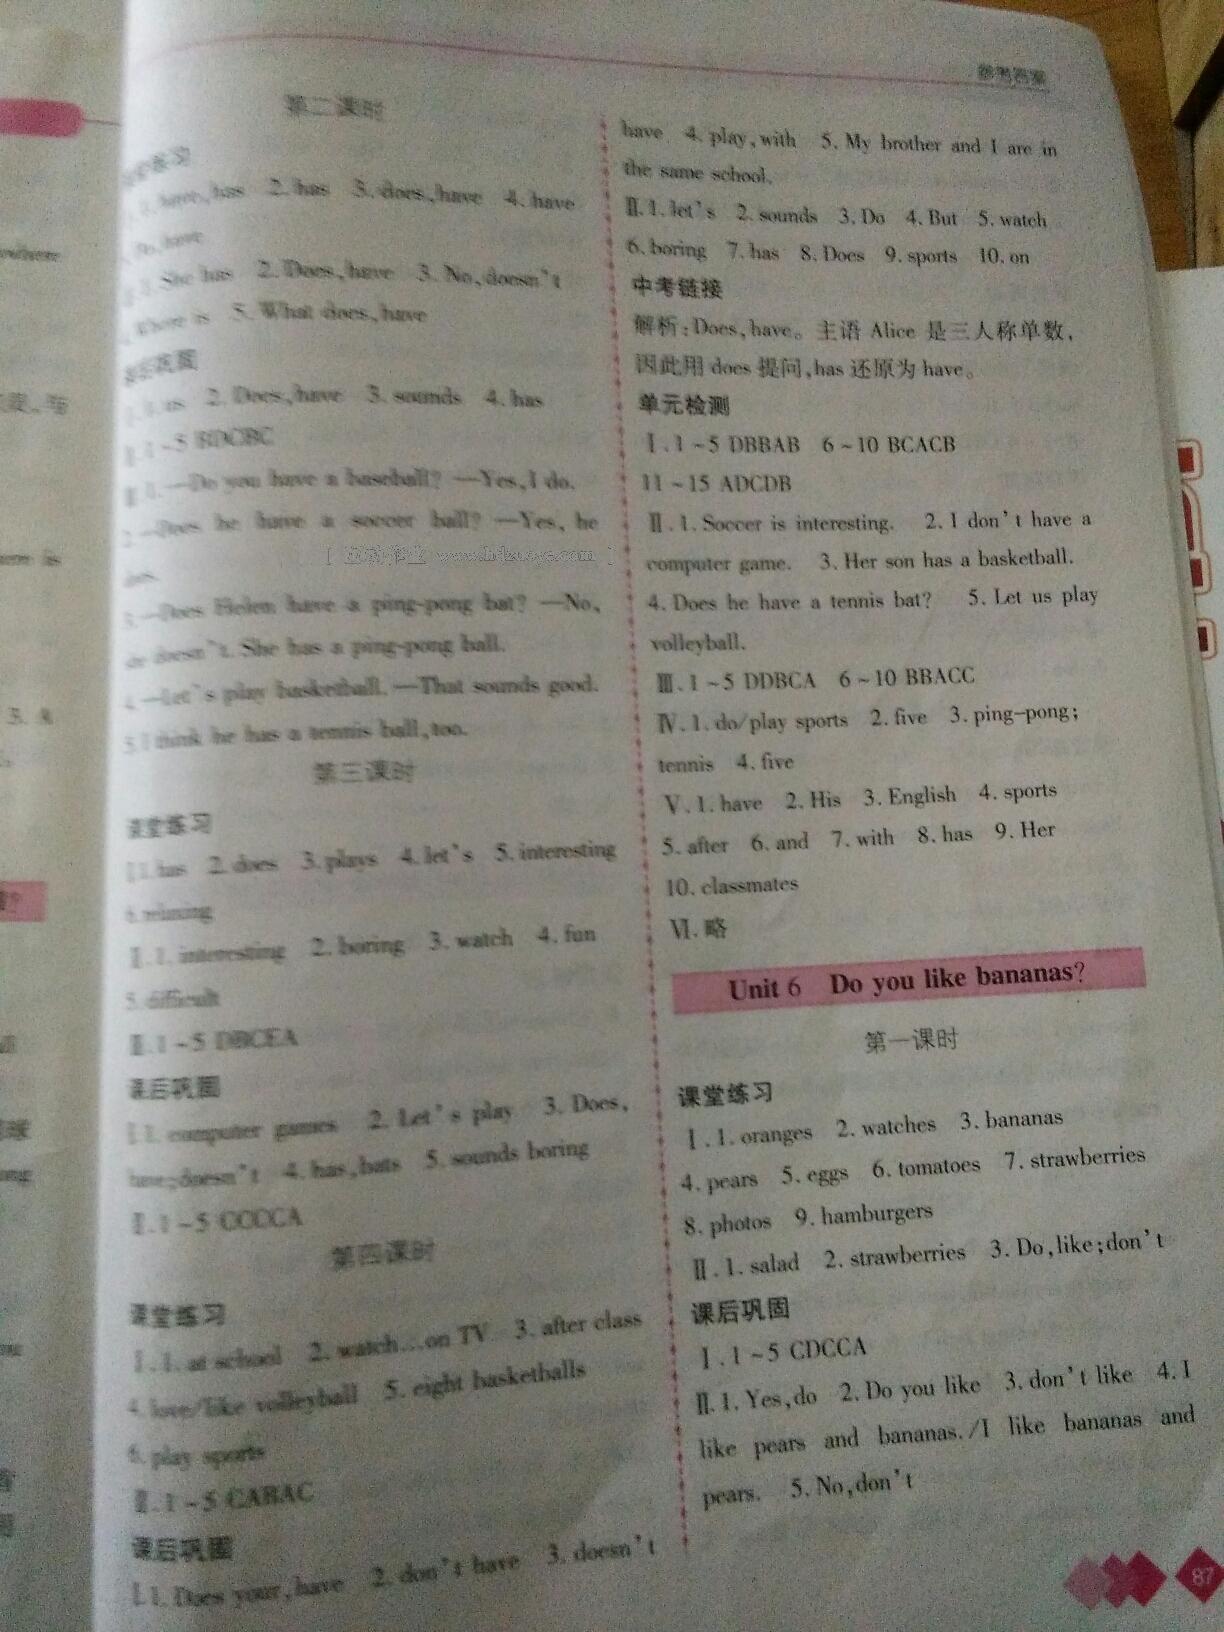 参考答案
第二课时
have,has 2. has 3. does,have 4. have
have
She has 2. Does,have 3. No,doesn't
There is 5. What does,have
课后巩固
2. Does,have 3. sounds 4. has
1~5 BDCBC
1.—Do you have a baseball? —Yes,I do.
2.—Does he have a soccer ball? —Yes, he
does.
3.—Does Helen have a ping-pong bat? —No,
doesn't. She has a ping-pong ball.
4.—Let's play basketball.—That sounds good.
5.I think he has a tennis ball,too.
第三课时
课堂练习
Ⅰ.1. has 2. does 3. plays 4. let's 5. interesting
6. relaxing
Ⅱ.1. interesting 2. boring 3. watch 4. fun
5. difficult
Ⅲ.1~5 DBCEA
课后巩固
Ⅰ.1. computer games 2. Let's play 3. Does,
have;doesn't 4. has,bats 5. sounds boring
Ⅱ.1~5
第四课时
课堂练习
Ⅰ.1. at school 2. watch…on TV 3. after class
4. love/like volleyball 5. eight basketballs
6. play sports
Ⅱ.1~5 CABAC
课后巩固
Ⅰ.1. Does your,have 2. don't have 3. doesn't
have 4. play,with 5. My brother and I are in
the same school.
Ⅱ.1. let's 2. sounds 3. Do 4. But 5. watch
6. boring 7. has 8. Does 9. sports 10. on
中考链接
解析:Does,have。主语 Alice 是三人称单数,
因此用 does 提问,has 还原为 have。
单元检测
Ⅰ.1~5 DBBAB 6~10 BCACB
11~15 ADCDB
Ⅱ.1. Soccer is interesting. 2. I don't have a
computer game. 3. Her son has a basketball.
4. Does he have a tennis bat? 5. Let us play
volleyball.
Ⅲ.1~5 DDBCA 6~10 BBACC
Ⅳ.1. do/play sports 2. five 3. ping-pong;
tennis 4. five
Ⅴ.1. have 2. His 3. English 4. sports
5. after 6. and 7. with 8. has 9. Her
10. classmates
Ⅵ.略
Unit 6 Do you like bananas?
第一课时
课堂练习
Ⅰ.1. oranges 2. watches 3. bananas
4. pears 5. eggs 6. tomatoes 7. strawberries
8. photos 9. hamburgers
Ⅱ.1. salad 2. strawberries 3. Do,like;don't
课后巩固
Ⅰ.1~5 CDCCA
Ⅱ.1. Yes,do 2. Do you like 3. don't like 4. I
like pears and bananas./I like bananas and
pears. 5. No,don't
87